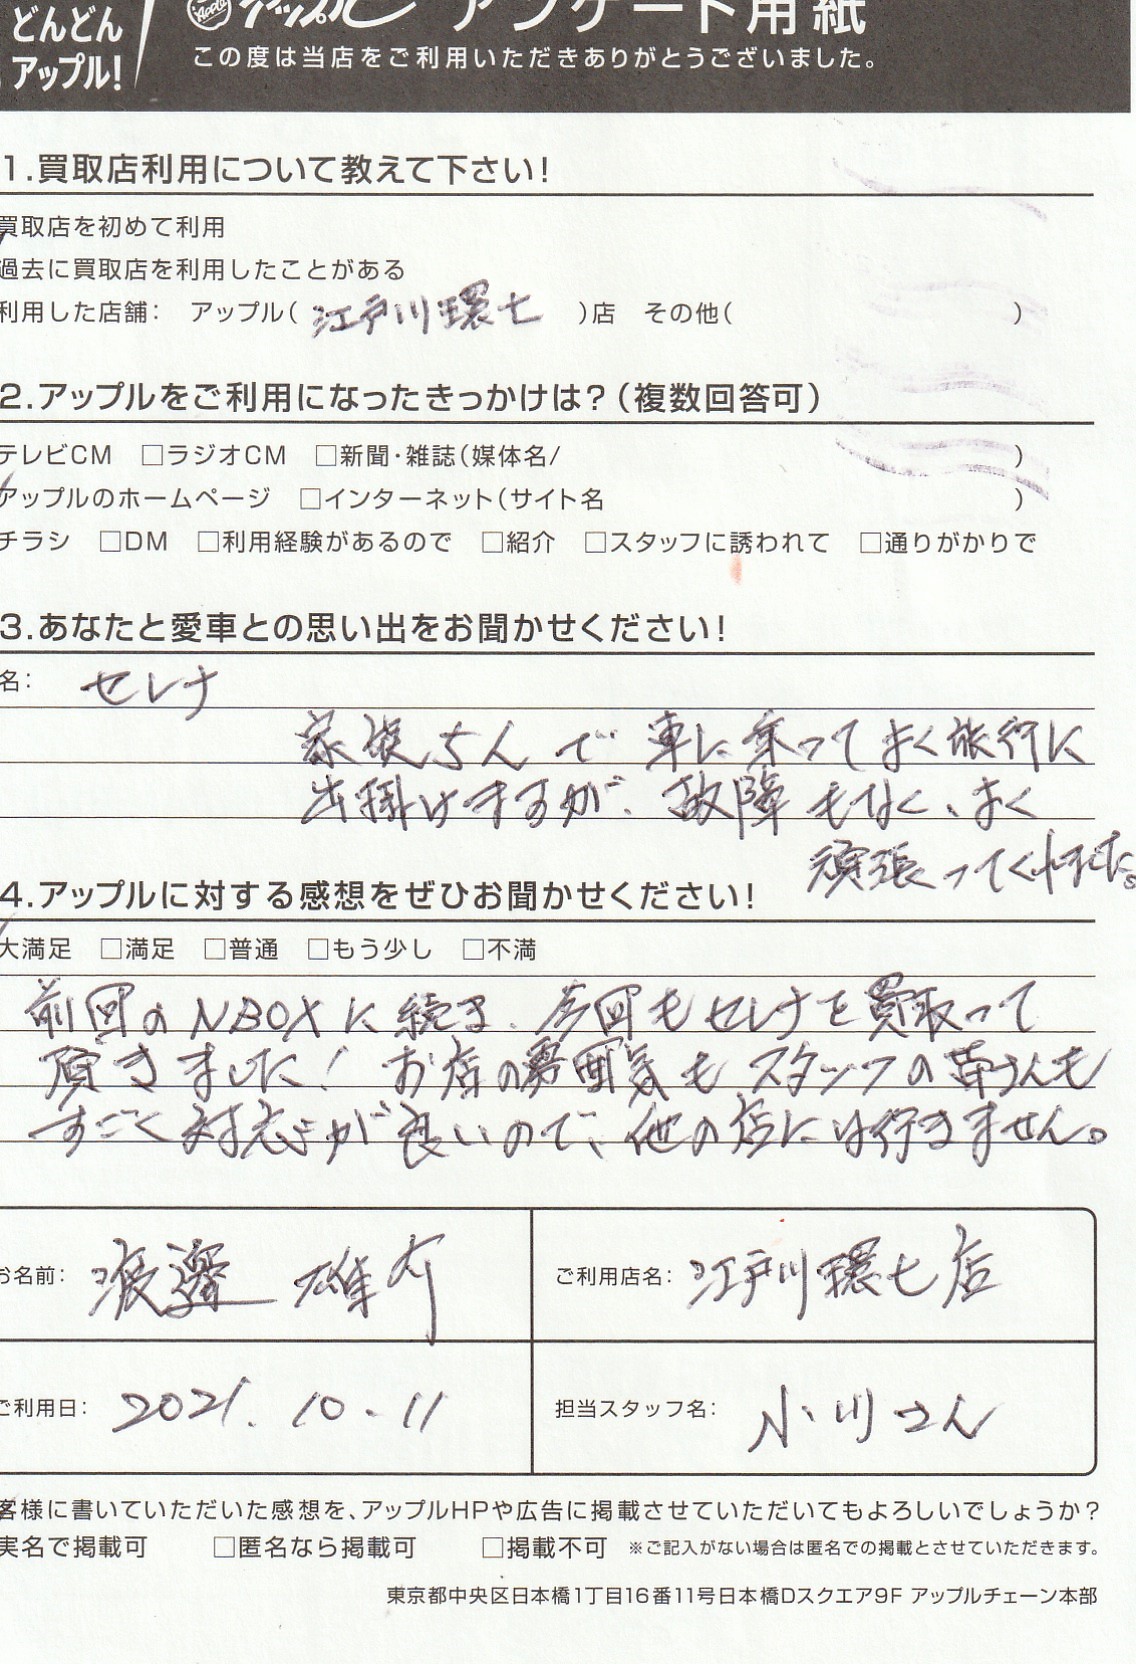 どんどん
アップル!
Apple アップル アンケート用紙
この度は当店をご利用いただきありがとうございました。
1.買取店利用について教えて下さい!
買取店を初めて利用
過去に買取店を利用したことがある
利用した店舗: アップル( 江戸川環七 )店 その他( )
2.アップルをご利用になったきっかけは?(複数回答可)
テレビCM □ラジオCM □新聞・雑誌(媒体名/ )
アップルのホームページ □インターネット(サイト名 )
チラシ □DM □利用経験があるので □紹介 □スタッフに誘われて □通りがかりで
3.あなたと愛車との思い出をお聞かせください!
名: セレナ
家族5人で車に乗ってよく旅行に
出掛けますが、故障もなく、よく
頑張ってくれました。
4.アップルに対する感想をぜひお聞かせください!
大満足 □満足 □普通 □もう少し □不満
前回のNBOXに続き、今回もセレナを買取って
頂きました! お店の雰囲気もスタッフの皆さんも
すごく対応が良いので、他の店には行きません。
お名前: 渡邊 雄介
ご利用店名: 江戸川環七店
ご利用日: 2021.10.11
担当スタッフ名: 小川さん
客様に書いていただいた感想を、アップルHPや広告に掲載させていただいてもよろしいでしょうか?
実名で掲載可 □匿名なら掲載可 □掲載不可 ※ご記入がない場合は匿名での掲載とさせていただきます。
東京都中央区日本橋1丁目16番11号日本橋Dスクエア9F アップルチェーン本部